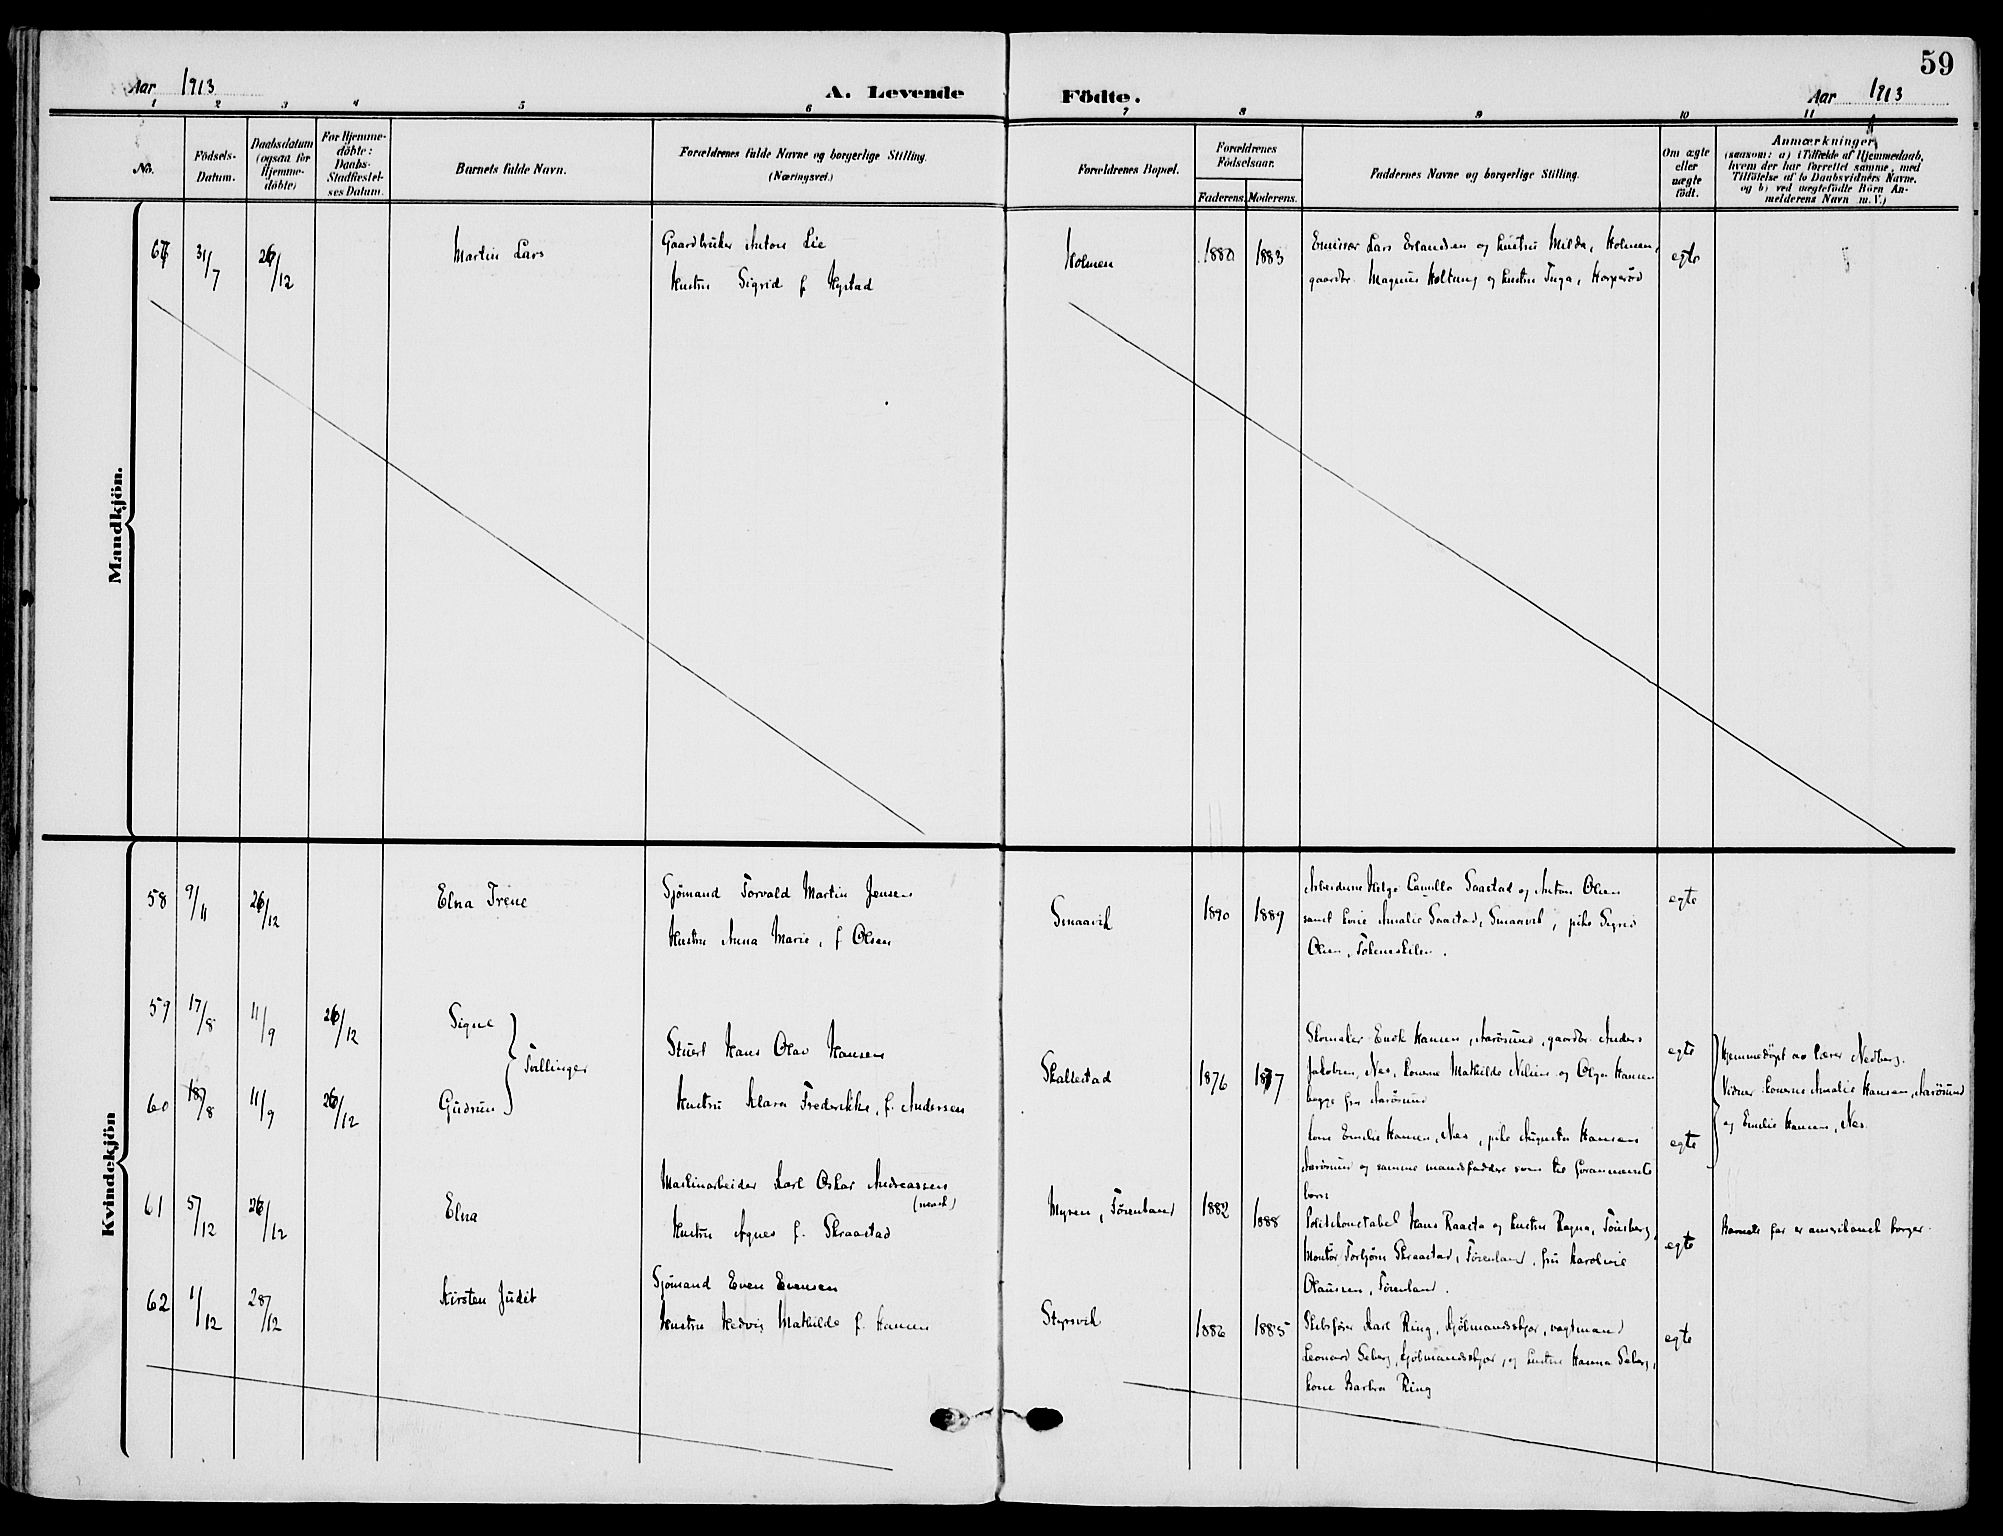 59
Aar 1913
A. Levende Fødte.
Aar 1913
1 2 3 4 5 6 7 8 9 10 11
No.
Födsels-Datum.
Daabsdatum (ogsaa for Hjemme-döbte)
For Hjemme-döbte: Daabs-Stadfæstel-ses Datum.
Barnets fulde Navn.
Forældrenes fulde Navne og borgerlige Stilling.
(Næringsvei.)
Forældrenes Bopæl.
Forældrenes Födselsaar.
Faderens. Moderens.
Faddernes Navne og borgerlige Stilling.
Om ægte eller uægte födt.
Anmærkninger
(saasom: a) i Tilfælde af Hjemmedaab,
hvem der har forrettet samme, med
Tilföielse af to Daabsvidners Navne,
og b) ved uægtefödte Börn An-
melderens Navn m. V.)
Mandkjön.
67 31/7 26/12 Martin Lars
Gaardbruker Anton Lie
Hustru Sigrid f. Hystad
Holmen 1880 1883
Emissær Lars Erlandsen og hustru Milda, Holmen,
gaardbr. Magnus Holtung og hustru Inga, Horperød
egte
Kvindekjön
58 9/11 26/12 Elna Irene
Sjømand Torvald Martin Jensen
Hustru Anna Marie, f. Olsen
Smaavik 1890 1889
Arbeiderne Helge Camillo Saastad og Anton Olsen
samt kone Amalie Saastad, Smaavik, pike Sigrid
Olsen,
egte
59 17/8 11/9 26/12 Signe
Tvillinger
60 18/8 11/9 26/12 Gudrun
Stuert Hans Olav Hansen
Hustru Klara Frederikke, f. Andersen
Skallestad 1876 1877
Skomaker Enok Hansen, Aarøsund, gaardbr. Anders
Jakobsen, Nes, konerne Mathilde Nilsen og Olga Hansen
begge fra Aarøsund
egte
kone Emilie Hansen, Nes, pike Augusta Hansen
Aarøsund og samme mandsfaddere som til forannævnte
barn
egte
Hjemmedøpt av lærer Nedberg.
Vidner: konerne Amalie Hansen, Aarøsund
og Emilie Hansen, Nes.
61 5/12 26/12 Elna
Maskinarbeider Karl Oskar Andreassen
(norsk)
Hustru Agnes f. Skraastad
Myren, Førenland 1882 1888
Politikonstabel Hans Raasta og hustru Ragna, Tønsberg,
Montør Torbjørn Skraastad, Førenland, fru Karoline
Olaussen, Førenland.
egte
Barnets far er amerikansk borger.
62 11/12 28/12 Kirsten Judit
Sjømand Even Evensen
Hustru Hedvig Mathilde f. Hansen
Styrsvik 1886 1885
Skibsfører Karl Ring, Kjølmandsskjær, vagtmand
Leonard Seberg, Kjølmandsskjær, og hustru Hanna Seberg,
kone Barbra Ring
egte